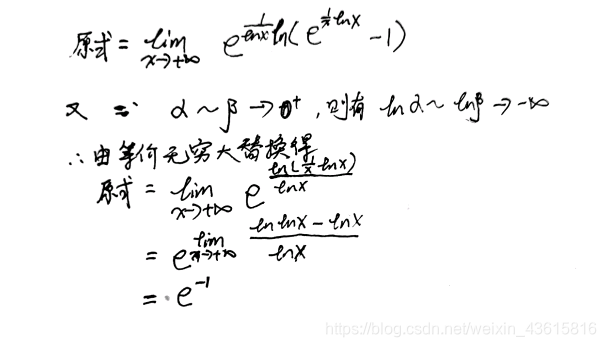 原式 = lim x→+∞ e^{1/lnx ln(e^{1/x lnx} -1)}
又 ∵ α ~ β → 0⁺, 则有 lnα ~ lnβ → -∞
∴ 由等价无穷大替换得
原式 = lim x→+∞ e^{ln(1/x lnx)/lnx}
= e^{lim x→+∞ (lnlnx - lnx)/lnx}
= e⁻¹
https://blog.csdn.net/weixin_43615816